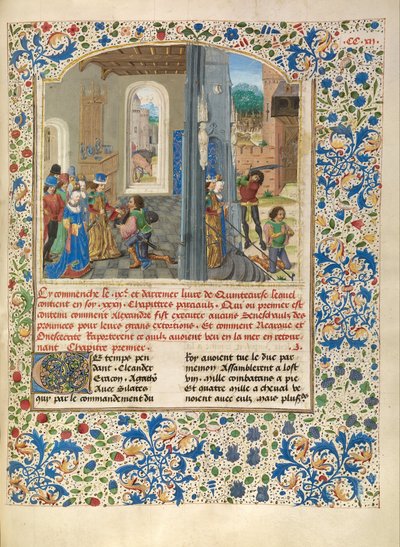 CC. xii
Cy commenche le .ixe. et darremer liure de Quintecurse lequel
contient en soy .xxxi. Chapittres parciaulx. Qui ou premier est
contenu comment Alexandre fist executer aucuns Seneschaulz des
prouinces pour leurs grans extortions. Et comment Nearque et
Onesecrite Rapporterent ce quilz auoient veu en la mer en retour
nant Chapittre premier. .i.
Es temps pen
dant. Cleander
Sitacon. Agathon
Auec Silatres
qui par le commandement du
Roy auoient tue le duc par
menion Assamblerent a lost
Mille combattans a pie
Et quatre mille a cheual Ve
noient auec eulz. mais